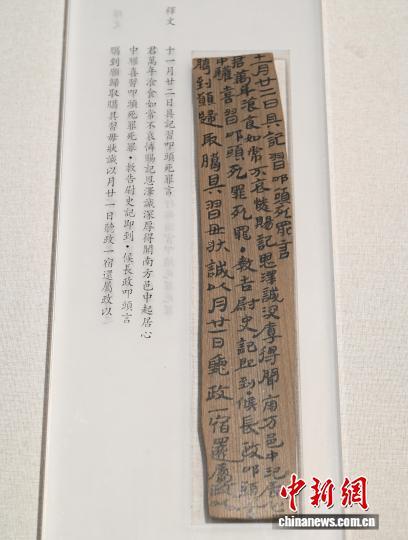 十一月廿二日具記習叩頭死罪言
君萬年湌食如常不哀憐賜記恩澤誠深厚得聞南方邑中起居心
中驩喜習叩頭死罪死罪·教告尉史記即到·候長政叩頭言
臈到願歸取臈具習毋狀誠以月廿一日聽政一宿還屬政以
釋文
十一月廿二日具記習叩頭死罪言
君萬年湌食如常不哀憐賜記恩澤誠深厚得聞南方邑中起居心
中驩喜習叩頭死罪死罪·教告尉史記即到·候長政叩頭言
臈到願歸取臈具習毋狀誠以月廿一日聽政一宿還屬政以
中新網
chinanews.com.cn